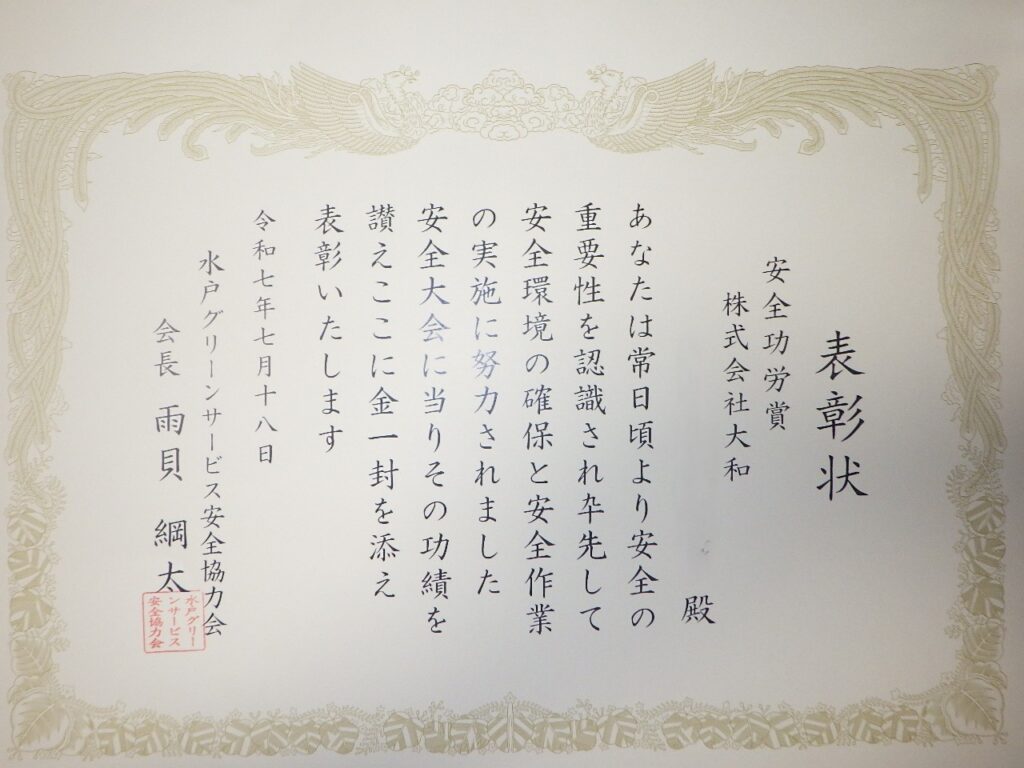 表彰状
安全功労賞
株式会社大和
殿
あなたは常日頃より安全の
重要性を認識され卒先して
安全環境の確保と安全作業
の実施に努力されました
安全大会に当りその功績を
讃えここに金一封を添え
表彰いたします
令和七年七月十八日
水戸グリーンサービス安全協力会
会長 雨貝 綱太
水戸グリー
ンサービス
安全協力会